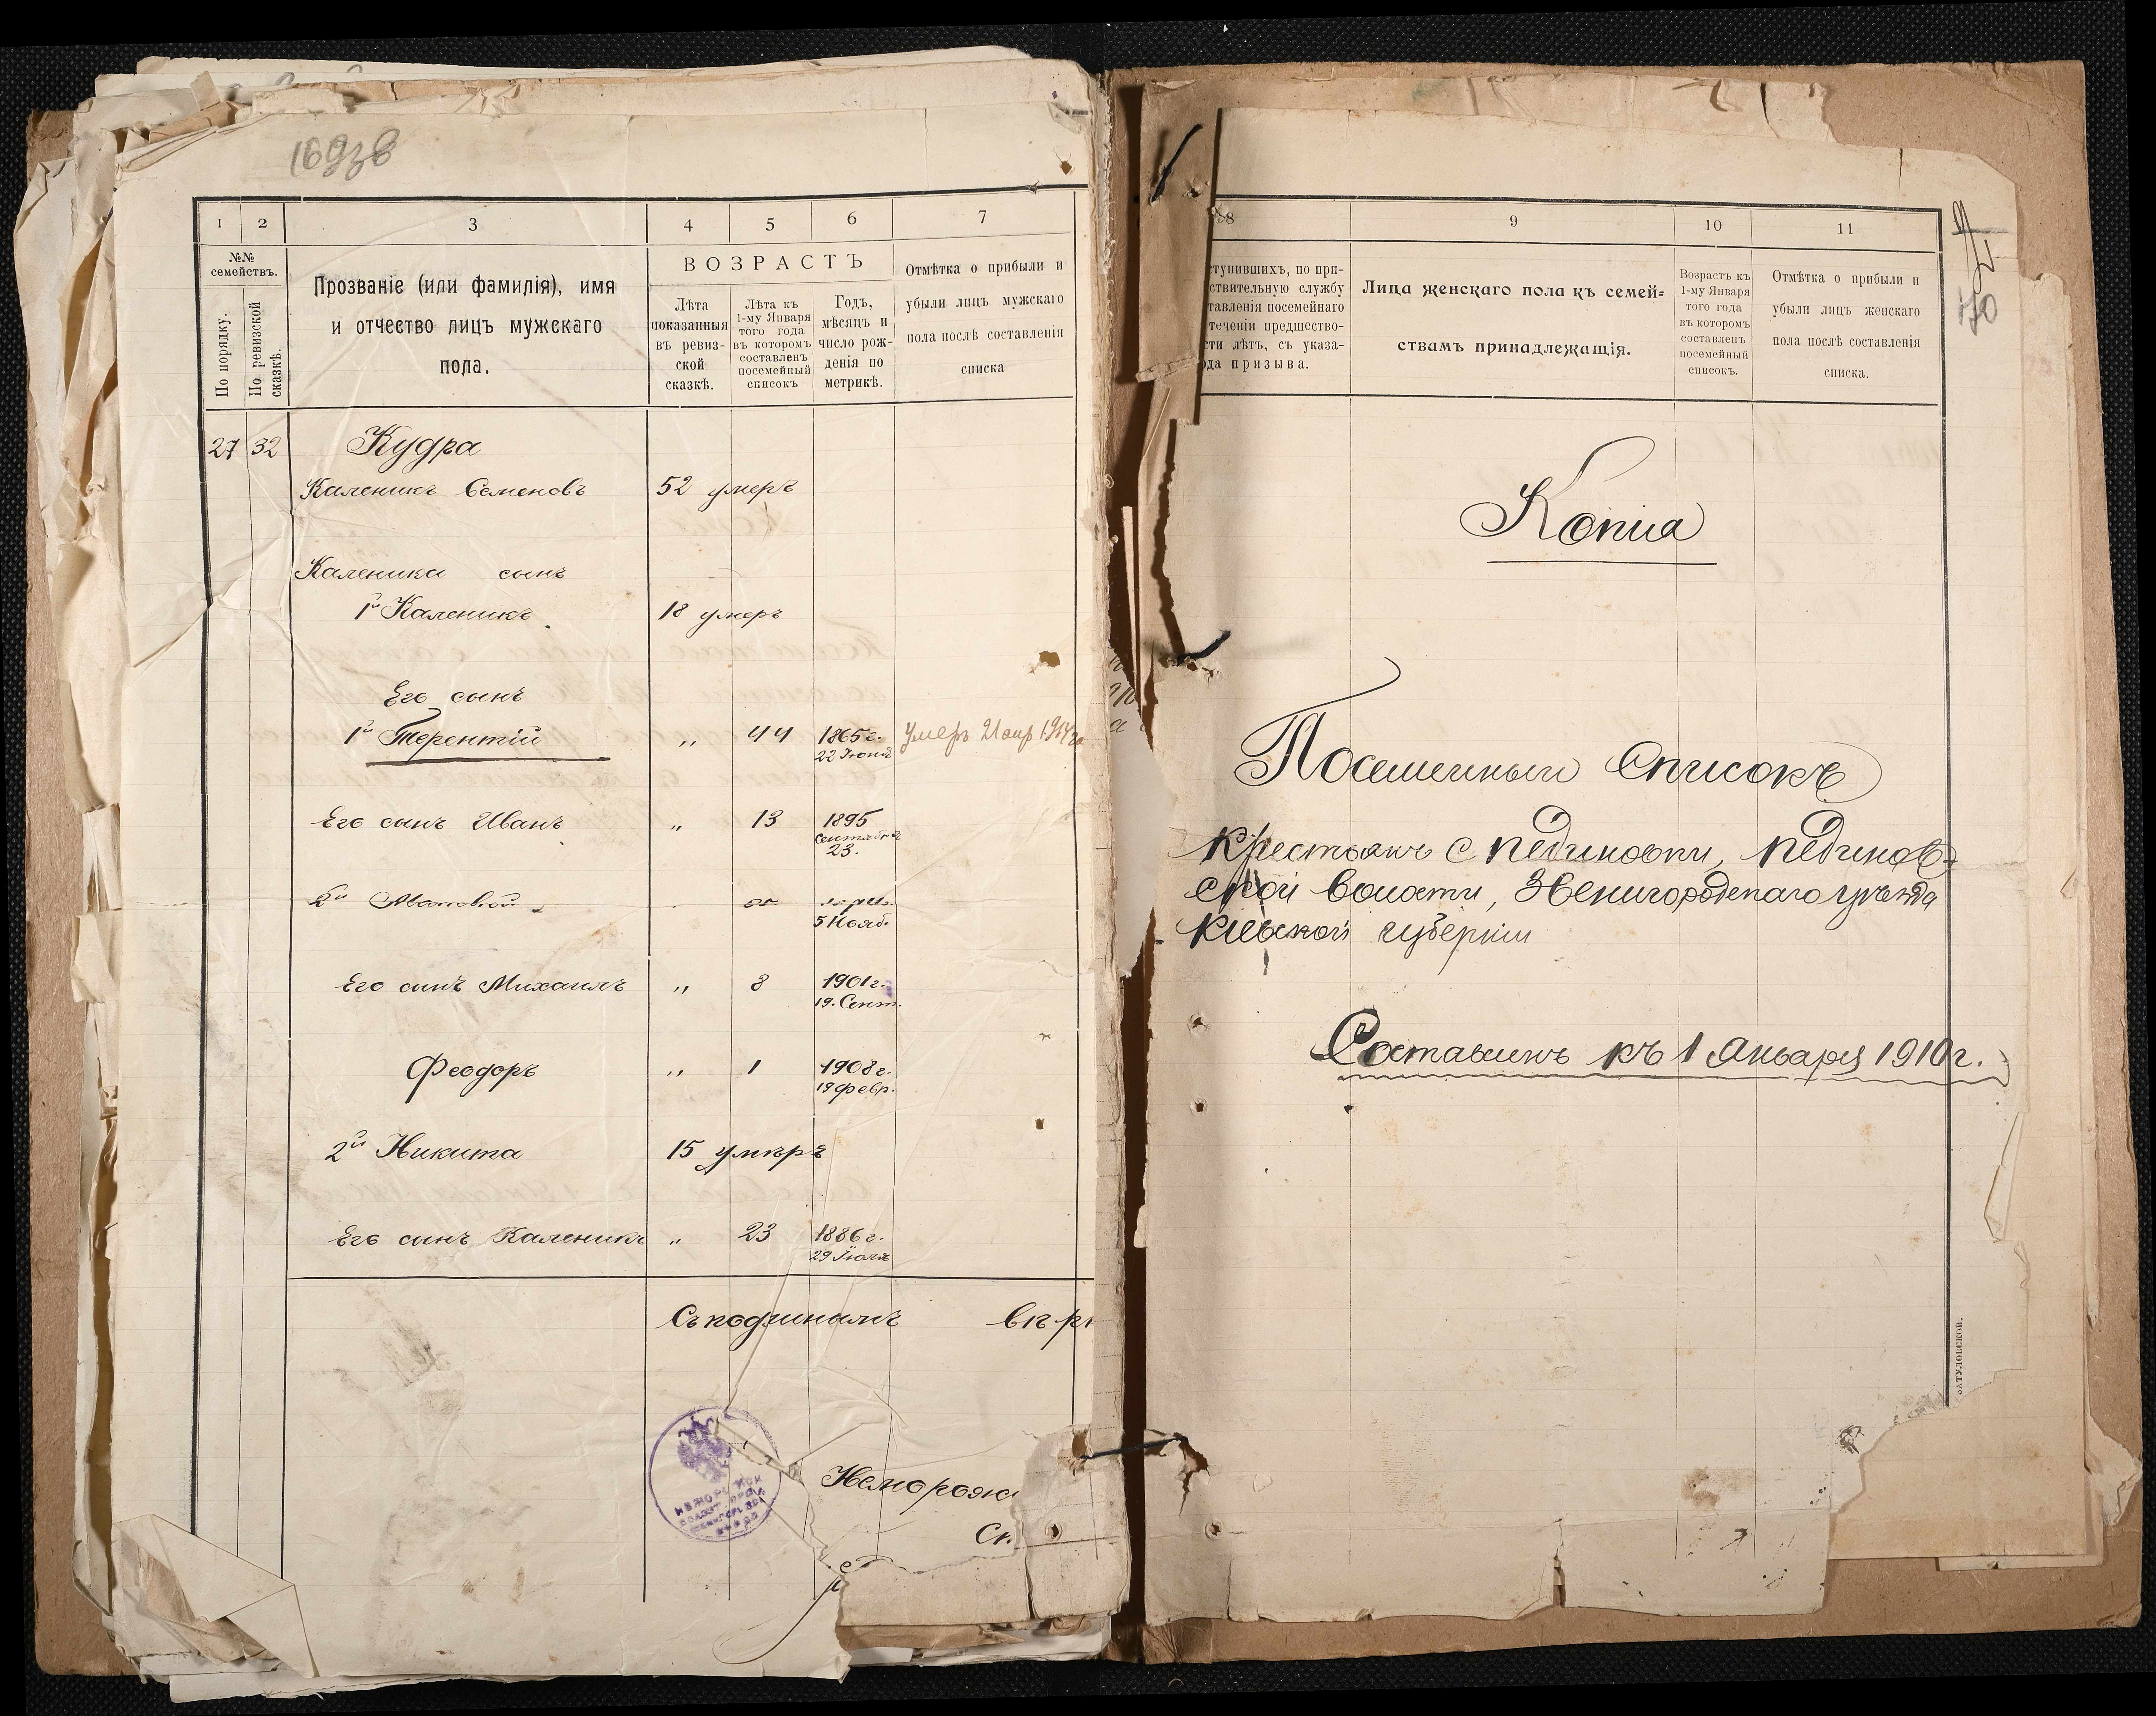 1 2 3 4 5 6 7
№№ семействъ.
По порядку.
По ревизской сказкѣ.
Прозваніе (или фамилія), имя
и отчество лицъ мужскаго
пола.
ВОЗРАСТЪ
Лѣта
показанныя
въ ревиз-
ской
сказкѣ.
Лѣта къ
1-му Января
того года
въ которомъ
составленъ
посемейный
списокъ
Годъ,
мѣсяцъ и
число рож-
денія по
метрикѣ.
Отмѣтка о прибыли и
убыли лицъ мужскаго
пола послѣ составленія
списка
27 32 Кудра
Каленикъ Семеновъ 52 умеръ
Каленика сынъ
1й Каленикъ. 18 умеръ
Его сынъ
1й Терентій „ 44 1865 г.
22 Іюня
Умеръ
Его сынъ Иванъ „ 13 1895
Сентября
23.
2й
5 Нояб.
Его сынъ Михаилъ „ 8 1901 г.
19. Сент.
Феодоръ „ 1 1908 г.
19 февр.
2й Никита 15 умѣръ
Его сынъ Каленикъ „ 23 1886 г.
29 Іюля
Съ подлиннымъ вѣр
8 9 10 11
ступившихъ, по при-
ствительную службу
тавленія посемейнаго
теченіи предшество-
сти лѣтъ, съ указа-
ода призыва.
Лица женскаго пола къ семей-
ствамъ принадлежащія.
Возрастъ къ
1-му Января
того года
въ которомъ
составленъ
посемейный
списокъ.
Отмѣтка о прибыли и
убыли лицъ женскаго
пола послѣ составленія
списка.
70
Копія
Посемейный Списокъ
крестьянъ с Пединовки, Пединов-
ской волости, Звенигородскаго уѣзда
Кіевской губерніи
Составленъ къ 1 Января 1910 г.